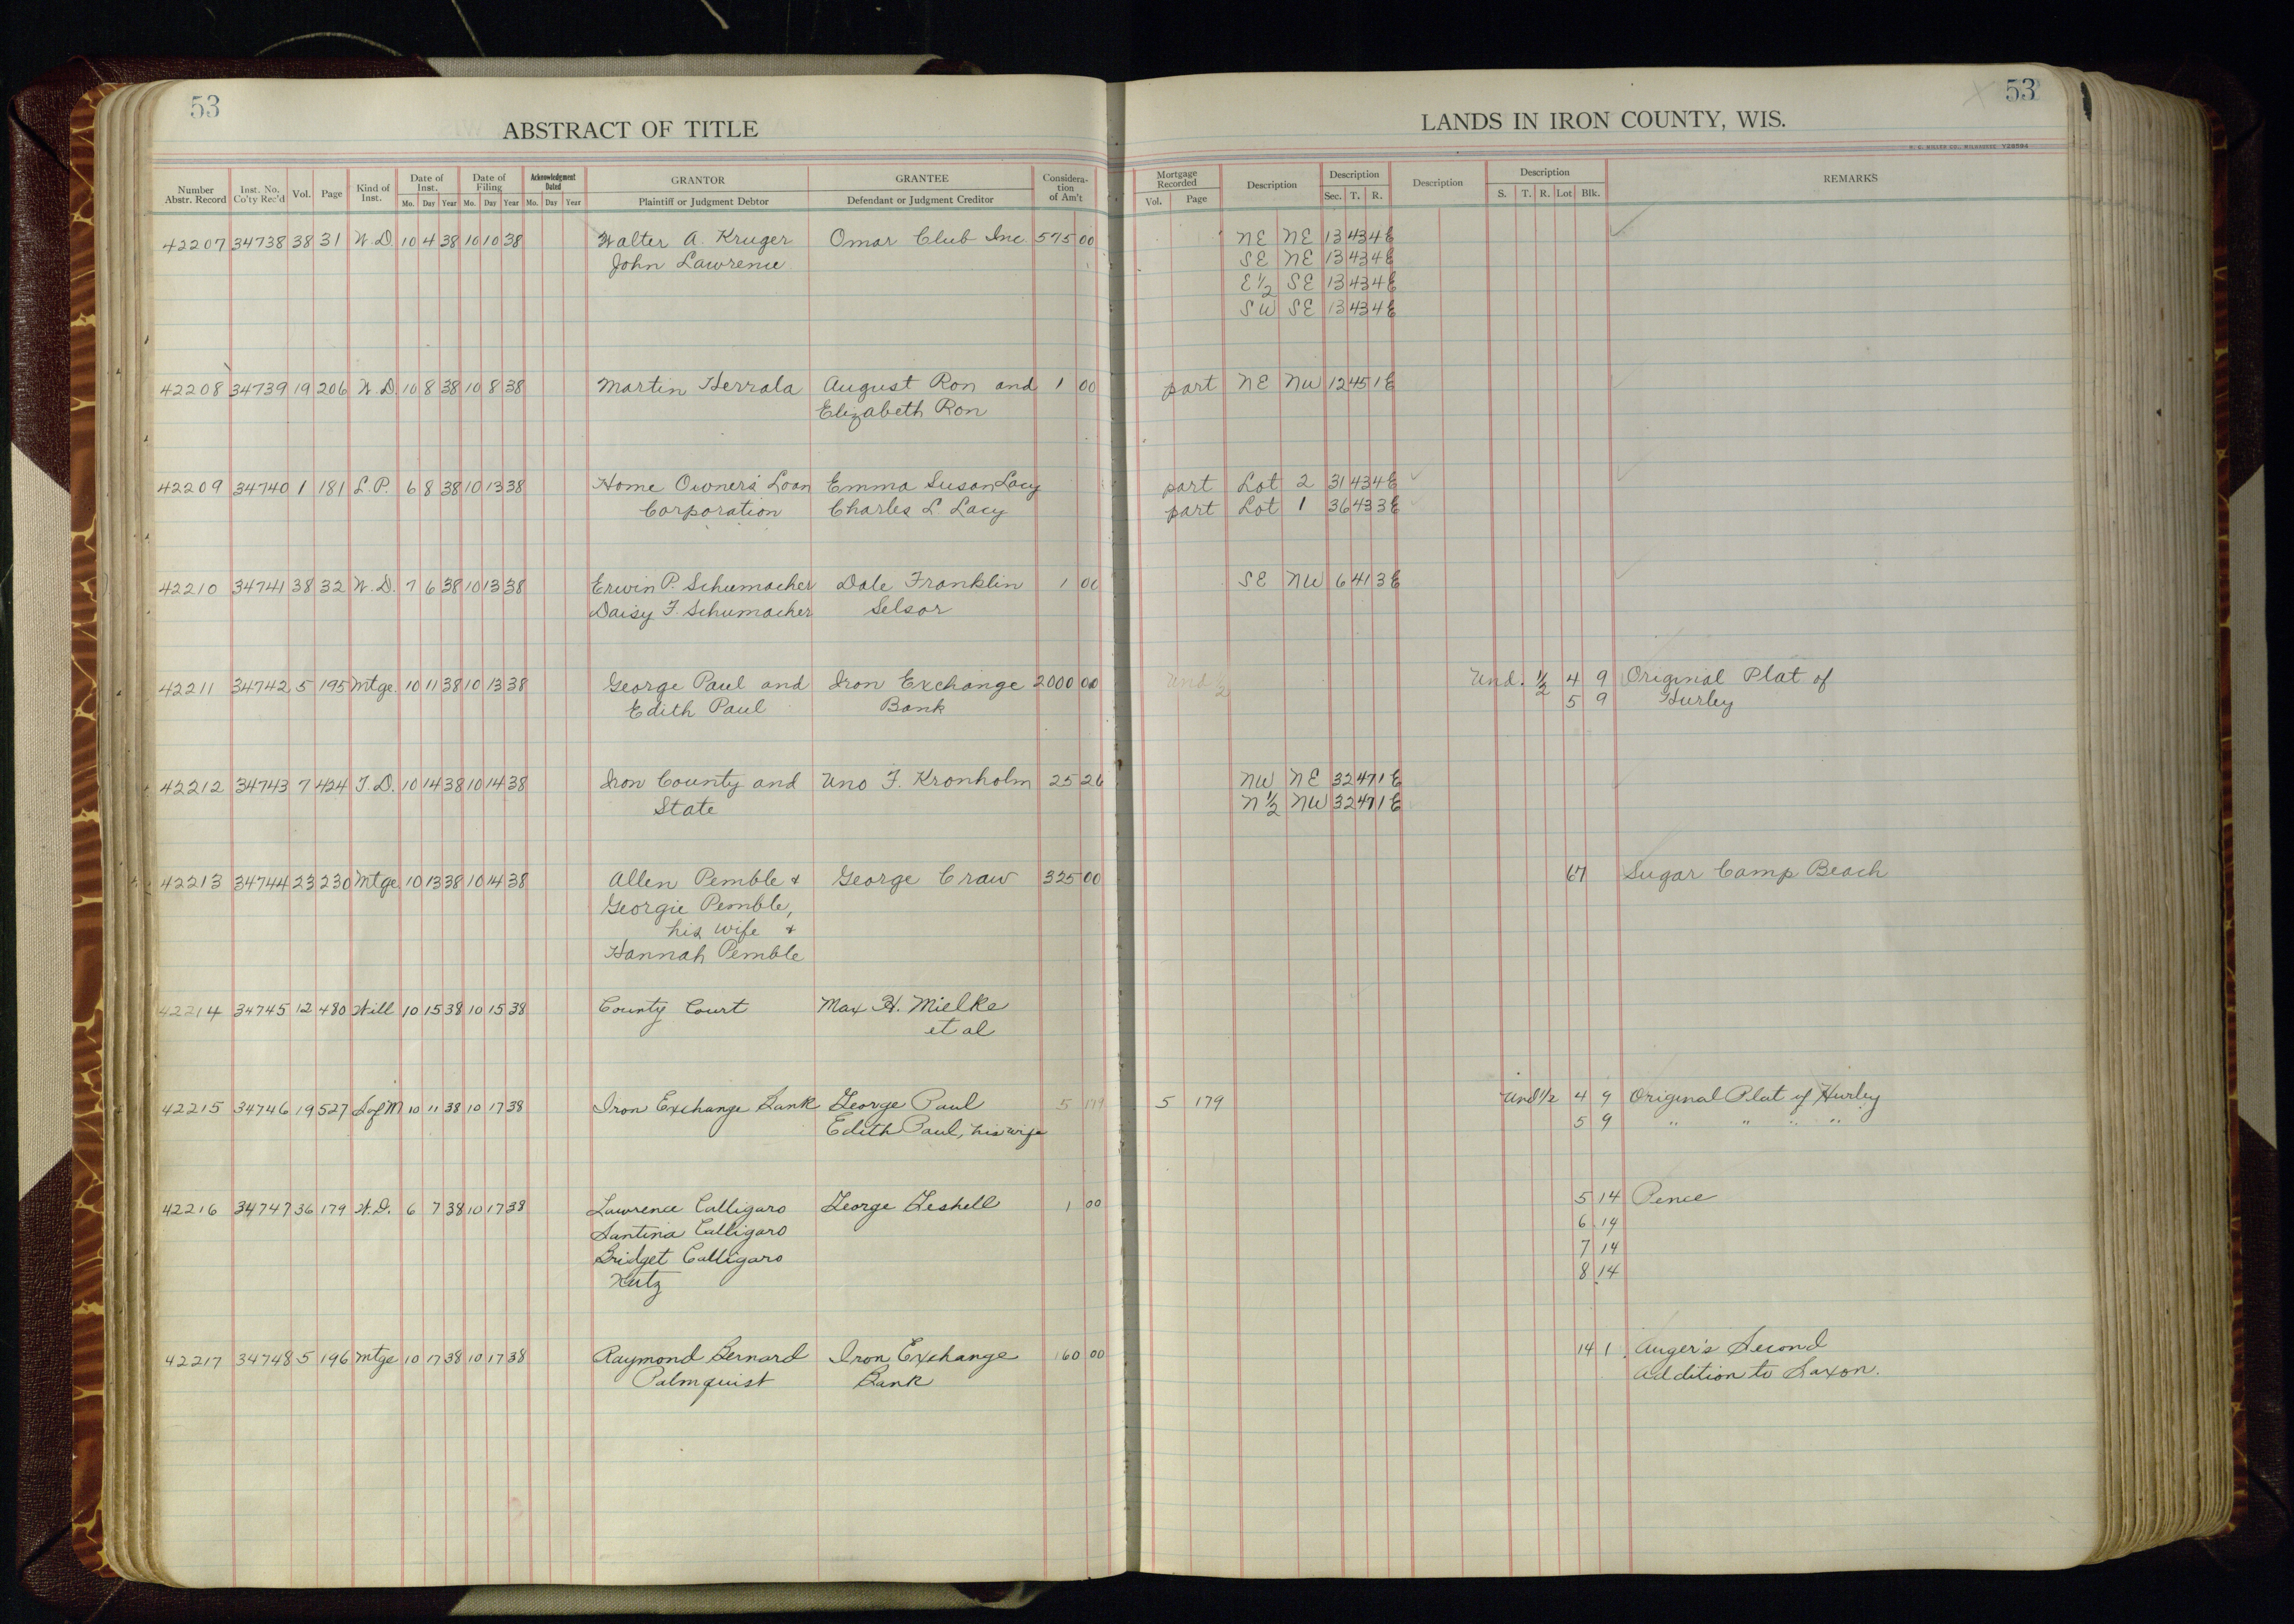 53
ABSTRACT OF TITLE
Number Abstr. Record Inst. No. Co'ty Rec'd Vol. Page Kind of Inst. Date of Inst. Mo. Day Year Date of Filing Mo. Day Year Acknowledgment Dated Mo. Day Year GRANTOR Plaintiff or Judgment Debtor GRANTEE Defendant or Judgment Creditor Consideration of Am't
42207 34738 38 31 W.D. 10 4 38 10 10 38 Walter A. Kruger Omar Club Inc. 575 00
John Lawrence
42208 34739 19 206 W.D. 10 8 38 10 8 38 Martin Herrala August Ron and 1 00
Elizabeth Ron
42209 34740 1 181 L.P. 6 8 38 10 13 38 Home Owner's Loan Emma Susan Lacy
Corporation Charles L. Lacy
42210 34741 38 32 W.D. 7 6 38 10 13 38 Erwin P. Schumacher Dale Franklin 1 00
Daisy F. Schumacher Selsor
42211 34742 5 195 Mtge. 10 11 38 10 13 38 George Paul and Iron Exchange 2000 00
Edith Paul Bank
42212 34743 7 424 T.D. 10 14 38 10 14 38 Iron County and Uno F. Kronholm 25 26
State
42213 34744 23 230 Mtge 10 13 38 10 14 38 Allen Pemble & George Craw 325 00
Georgie Pemble,
his wife &
Hannah Pemble
42214 34745 12 480 Will 10 15 38 10 15 38 County Court Max H. Mielke
et al
42215 34746 19 527 S of M 10 11 38 10 17 38 Iron Exchange Bank George Paul 5 179
Edith Paul, his wife
42216 34747 36 179 W.D. 6 7 38 10 17 38 Lawrence Calligaro George Geshell 1 00
Santina Calligaro
Bridget Calligaro
Kutz
42217 34748 5 196 Mtge 10 17 38 10 17 38 Raymond Bernard Iron Exchange 160 00
Palmquist Bank
53
LANDS IN IRON COUNTY, WIS.
H. C. MILLER CO., MILWAUKEE
Mortgage Recorded Vol. Page Description Description Sec. T. R. Description Description S. T. R. Lot Blk. REMARKS
NE NE 13 43 4E
SE NE 13 43 4E
E½ SE 13 43 4E
SW SE 13 43 4E
part NE NW 12 45 1E
part Lot 2 31 43 4E
part Lot 1 36 43 3E
SE NW 6 41 3E
Und ½ Und. ½ 4 9 Original Plat of
5 9 Hurley
NW NE 32 47 1E
N½ NW 32 47 1E
67 Sugar Camp Beach
5 179 Und ½ 4 9 Original Plat of Hurley
5 9 " " " "
5 14 Pence
6 14
7 14
8 14
14 1 Auger's Second
Addition to Saxon.